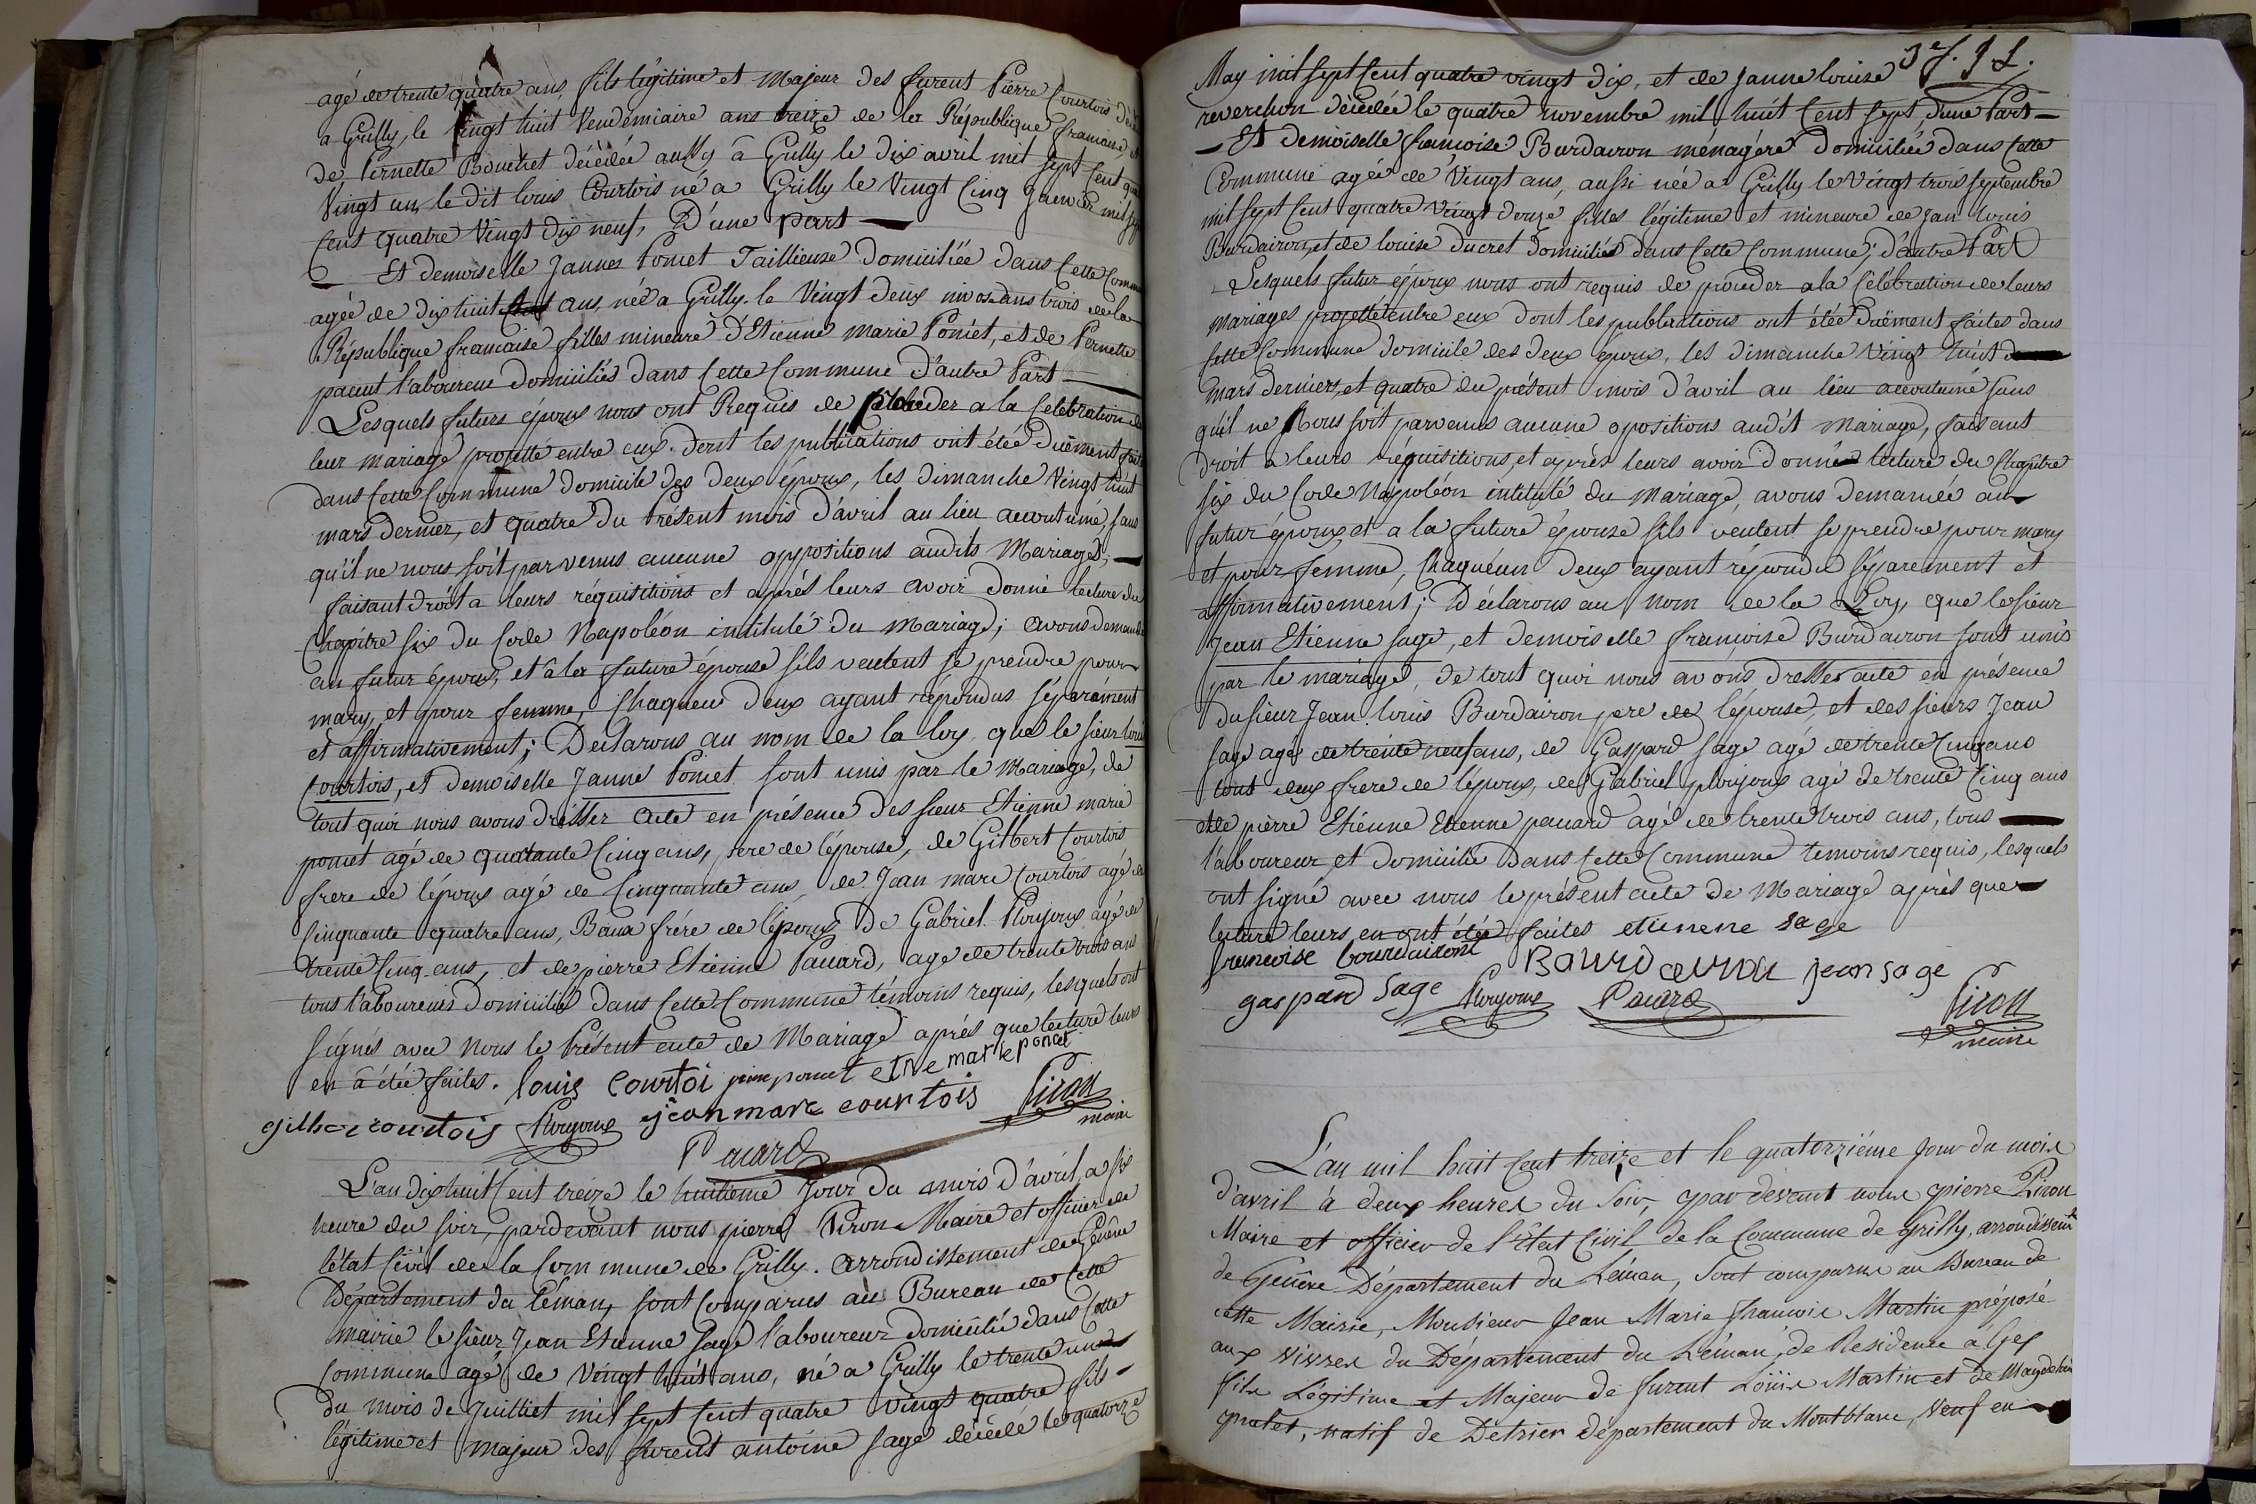 agé de trente quatre ans, fils légitime et majeur des furent Pierre Courtois
a Grilly, le vingt huit Vendemiaire ans treize de la République francaise, et
de Pernette Bouchet décédée aussy a Grilly le dix avril mil sept cent quatre
Vingt un, le dit louis Courtois né a Grilly le Vingt Cinq Janvier mil sept
Cent quatre Vingt dix neuf, D'une part
Et demoiselle Jannes Poncet Taillieuse domiciliée dans Cette Commune
agée de dix huit ans, née a Grilly le Vingt deux nivose ans trois de la
République francaise filles mineure D'Etienne marie Poncet, et de Pernette
l'aboureur domiciliés dans Cette Commune d'autre Part
Lesquels futurs époux nous ont Requis de procéder a la Celebration de
leur mariage projetté entre eux. dont les publications ont étée Duëment faites
dans Cette Commune domicile des deux époux, les dimanche Vingt huit
mars dernier, et quatre du Présent mois d'avril au lieu accoutumé, sans
qu'il ne nous soit parvenus aucune oppositions audits Mariages,
faisant Droit a leurs réquisitions et après leurs avoir donné lecture du
Chapitre six du Code Napoléon intitulé du mariage; avons demandé
au futur époux, et à la future épouse sils veulent se prendre pour
mary, et pour femme, Chaqueun deux ayant répondus séparément
et affirmativement; Déclarons au nom de la loy, que le sieur louis
Courtois, et demoiselle Janne Poncet sont unis par le Mariage, de
tout quoi nous avons Dresser acte en présence des sieur Etienne marie
poncet agé de quarante Cinq ans, pere de l'épouse, de Gilbert Courtois
frere de l'époux agé de Cinquante ans, de Jean marc Courtois agé de
Cinquante quatre ans, Beaux frére de l'époux De Gabriel Ploujoux agé de
trente Cinq ans, et de pierre Etienne Pacard, age de trente trois ans
tous l'aboureurs Domiciliés dans Cette Commune témoins requis, lesquels ont
signés avec nous le Présent acte de Mariage après que lecture leurs
en â étée faites. louis courtoi janne poncet etne marie poncet
gilber courtois Ploujoux jean marc courtois Piron
Pacard maire
L'an dixhuit Cent treize le huitieme Jour du mois d'avril, a six
heure du soir, pardevant nous pierre Piron Maire et officier de
l'état Civil de la Commune de Grilly. arrondissement de Genêve
Département du Léman, sont Comparus au Bureau de Cette
mairie le sieur Jean Etienne Sage l'aboureur domicilié dans Cette
Commune agé de Vingt huit ans, né a Grilly le trente un
du mois de Juilliet mil sept Cent quatre Vingt quatre fils
légitime et majeur des furent antoine Sage décédé le quatorze
37. J L.
May mil sept Cent quatre vingt dix, et de Janne louise
reverchon décédée le quatre novembre mil huit Cent sept, d'une Part
Et demoiselle francoise Burdairon ménagère Domiciliée dans Cette
Commune agée de Vingt ans, aussi née a Grilly le Vingt trois septembre
mil sept Cent quatre Vingt douze filles légitime et mineure de Jan louis
Burdairon, et de louise Ducret domiciliés dans Cette Commune, d'autre Part
Lesquels futur époux nous ont requis de proceder a la Célébration de leurs
mariages projetté entre eux dont les publications ont étée Duëment faites dans
Cette Commune domicile des deux époux, les dimanche Vingt huit
mars derniers, et quatre du présent mois d'avril au lieu accoutumé sans
qu'il ne Nous soit parvenus aucune opositions audit Mariage, faisant
Droit a leurs réquisitions, et après leurs avoir donnés lecture du Chapitre
six du Code Napoléon intitulé du Mariage, avons demandé au
futur époux et a la future épouse sils veulent se prendre pour mary
et pour femme, Chaquéun deux ayant répondu séparement et
affirmativement; Déclarons au nom de la Loy, que le sieur
Jean Etienne Sage, et demoiselle francoise Burdairon sont unis
par le mariage, de tout quoi nous avons dresser acte en présence
du sieur Jean louis Burdairon pere de l'épouse, et des sieurs Jean
Sage agé de trente neuf ans, de Gaspard Sage agé de trente Cinq ans
tout deux frere de l'époux, de Gabriel ploujoux agé de trente Cinq ans
et de pierre Etiénne Etienne pacard agé de trente trois ans, tous
l'aboureur et domicilié dans Cette Commune temoins requis, lesquels
ont signé avec nous le présent acte de Mariage après que
lecture leurs en ont étée faites etienene sage
francoise bourdairont Bourdairon jean sage
gaspard Sage Ploujoux Pacard Piron
maire
L'an mil huit Cent treize et le quatorzième Jour du mois
d'avril a deux heures du Soir, par devant nous pierre Piron
Maire et officier de l'Etat Civil de la Commune de Grilly, arrondissemt
de Genêve Département du Léman, Sont comparus au Bureau de
cette Mairie, Monsieur Jean Marie François Martin préposé
aux vivres du Département du Léman, de Résidence a Gex
fils Légitime et Majeur de furent Loüis Martin et de Magdelaine
natif de Detrier département du Montblanc, Veuf en